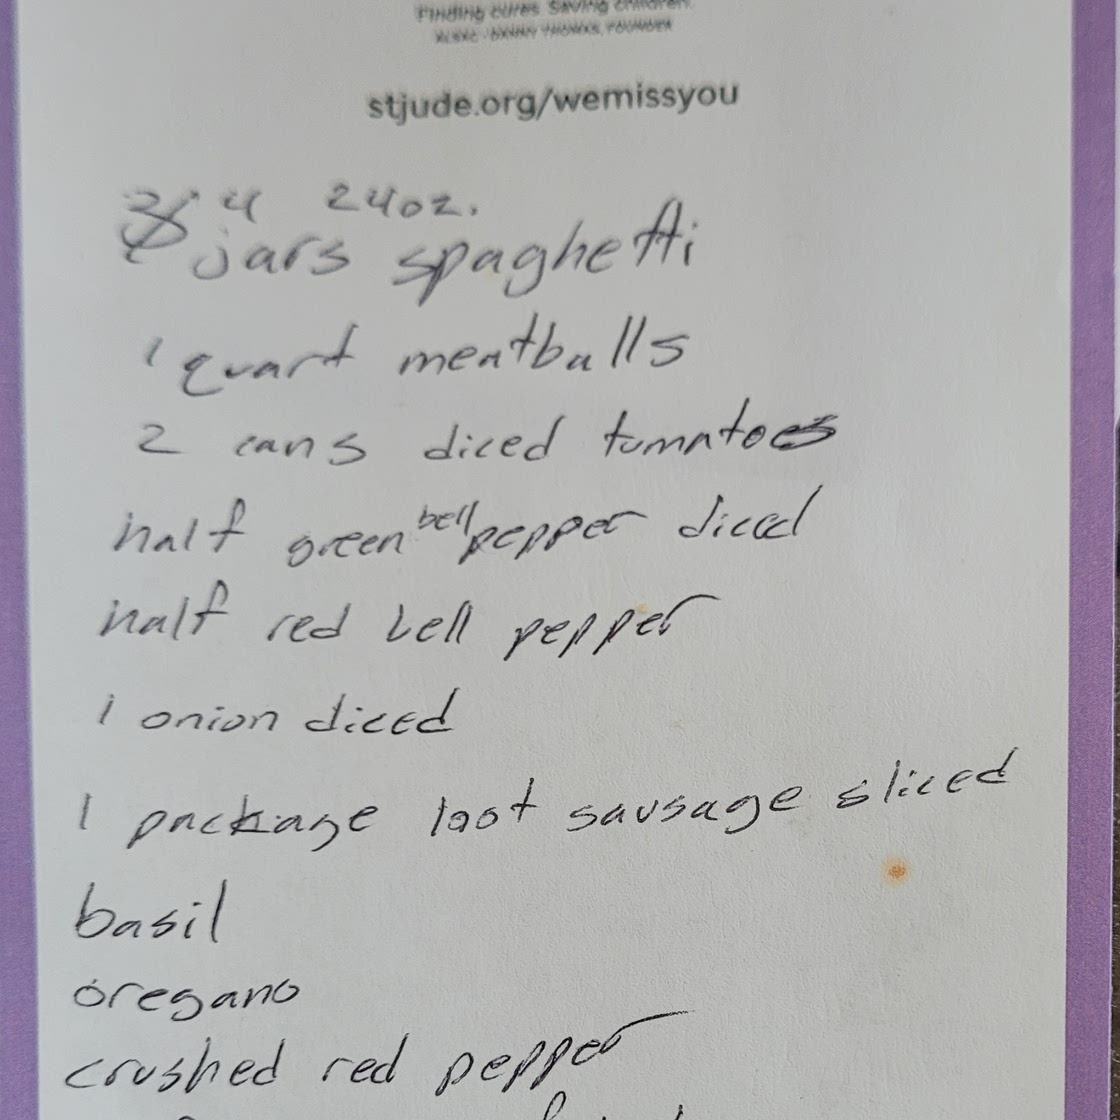 Finding cures. Saving children.
ALSAC · DANNY THOMAS, FOUNDER
stjude.org/wemissyou
4 24oz.
jars spaghetti
1 quart meatballs
2 cans diced tomatoes
half green bell pepper diced
half red bell pepper
1 onion diced
1 package sausage sliced
basil
oregano
crushed red pepper